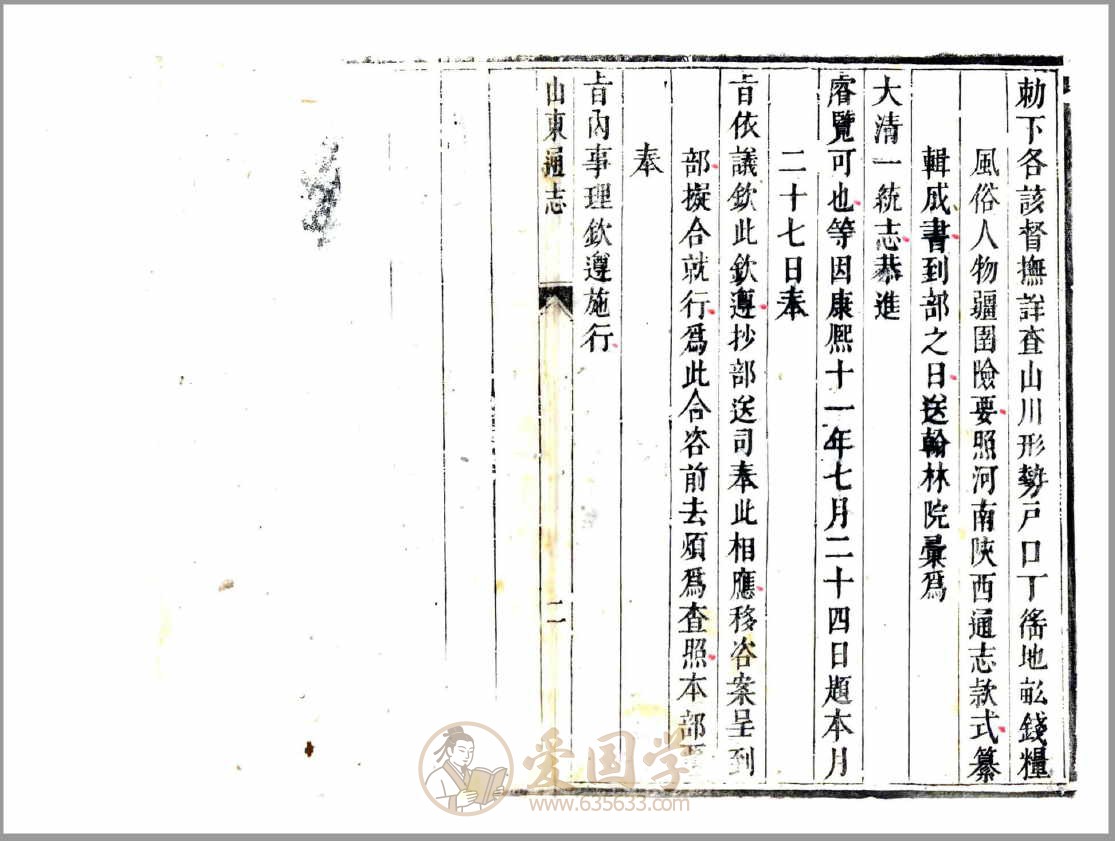 勅下各該督撫詳查山川形勢戶口丁徭地畝錢糧
風俗人物疆圉險要照河南陝西通志款式纂
輯成書到部之日送翰林院彙為
大清一統志恭進
睿覽可也等因康熙十一年七月二十四日題本月
二十七日奉
旨依議欽此欽遵抄部送司奉此相應移咨案呈到
部擬合就行爲此合咨前去煩爲查照本部
奉
旨內事理欽遵施行
山東通志 二
爱国学
www.635633.com